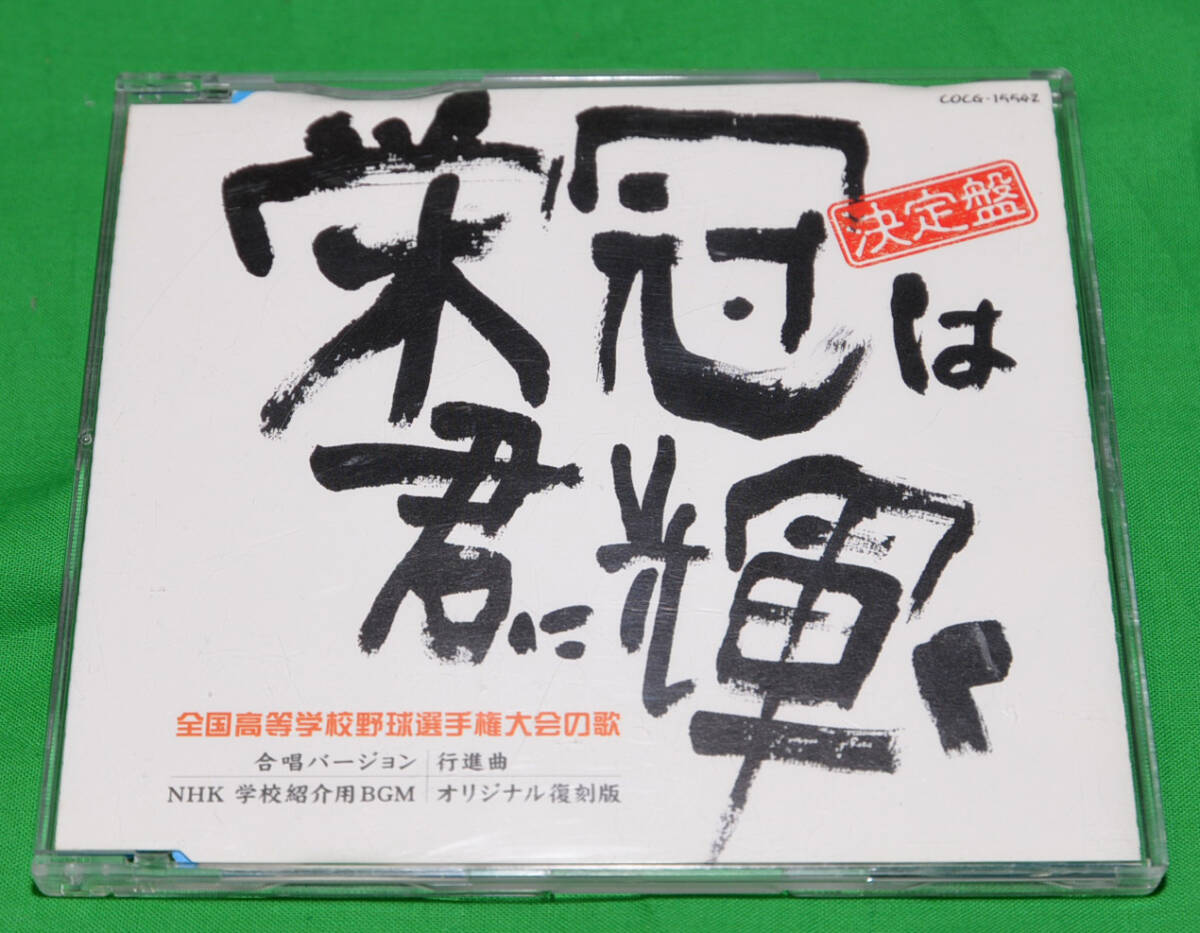 COCG-15542
栄冠は
決定盤
君に輝く
全国高等学校野球選手権大会の歌
合唱バージョン 行進曲
NHK 学校紹介用BGM オリジナル復刻版